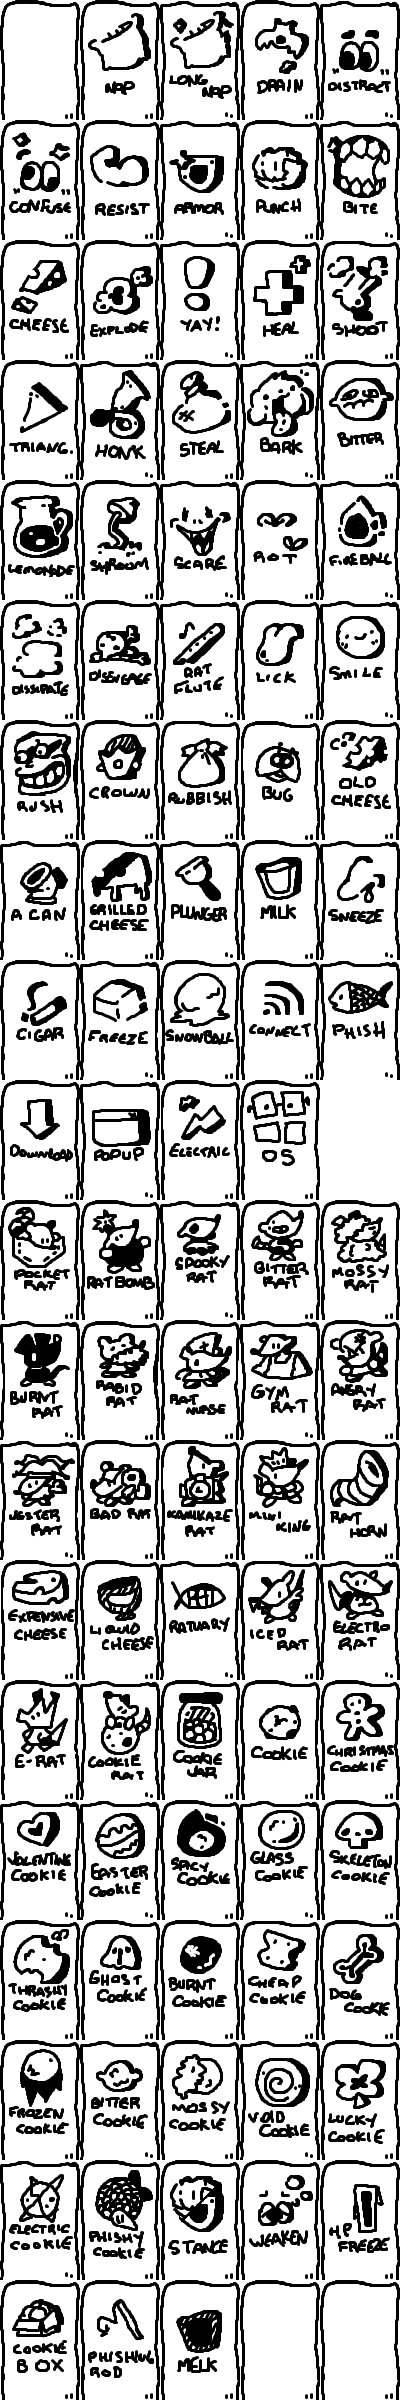 NAP
LONG
NAP
DRAIN
DISTRACT
CONFUSE
RESIST
ARMOR
PUNCH
BITE
CHEESE
EXPLODE
YAY!
HEAL
SHOOT
TRIANG.
HONK
STEAL
BARK
BITTER
LEMONADE
SHROOM
SCARE
ROT
FIREBALL
DISSIPATE
DISENGAGE
RAT
FLUTE
LICK
SMILE
RUSH
CROWN
RUBBISH
BUG
OLD
CHEESE
A CAN
GRILLED
CHEESE
PLUNGER
MILK
SNEEZE
CIGAR
FREEZE
SNOWBALL
CONNECT
PHISH
DOWNLOAD
POPUP
ELECTRIC
OS
POCKET
RAT
RAT BOMB
SPOOKY
RAT
BITTER
RAT
MOSSY
RAT
BURNT
RAT
RABID
RAT
RAT
NURSE
GYM
RAT
ANGRY
RAT
JESTER
RAT
BAD RAT
KAMIKAZE
RAT
MINI
KING
RAT
HORN
EXPENSIVE
CHEESE
LIQUID
CHEESE
RATUARY
ICED
RAT
ELECTRO
RAT
E-RAT
COOKIE
RAT
COOKIE
JAR
COOKIE
CHRISTMAS
COOKIE
VALENTINE
COOKIE
EASTER
COOKIE
SPICY
COOKIE
GLASS
COOKIE
SKELETON
COOKIE
THRASHY
COOKIE
GHOST
COOKIE
BURNT
COOKIE
CHEAP
COOKIE
DOG
COOKIE
FROZEN
COOKIE
BITTER
COOKIE
MOSSY
COOKIE
VOID
COOKIE
LUCKY
COOKIE
ELECTRIC
COOKIE
PHISHY
COOKIE
STANCE
WEAKEN
HP
FREEZE
COOKIE
BOX
PHISHING
ROD
MELK